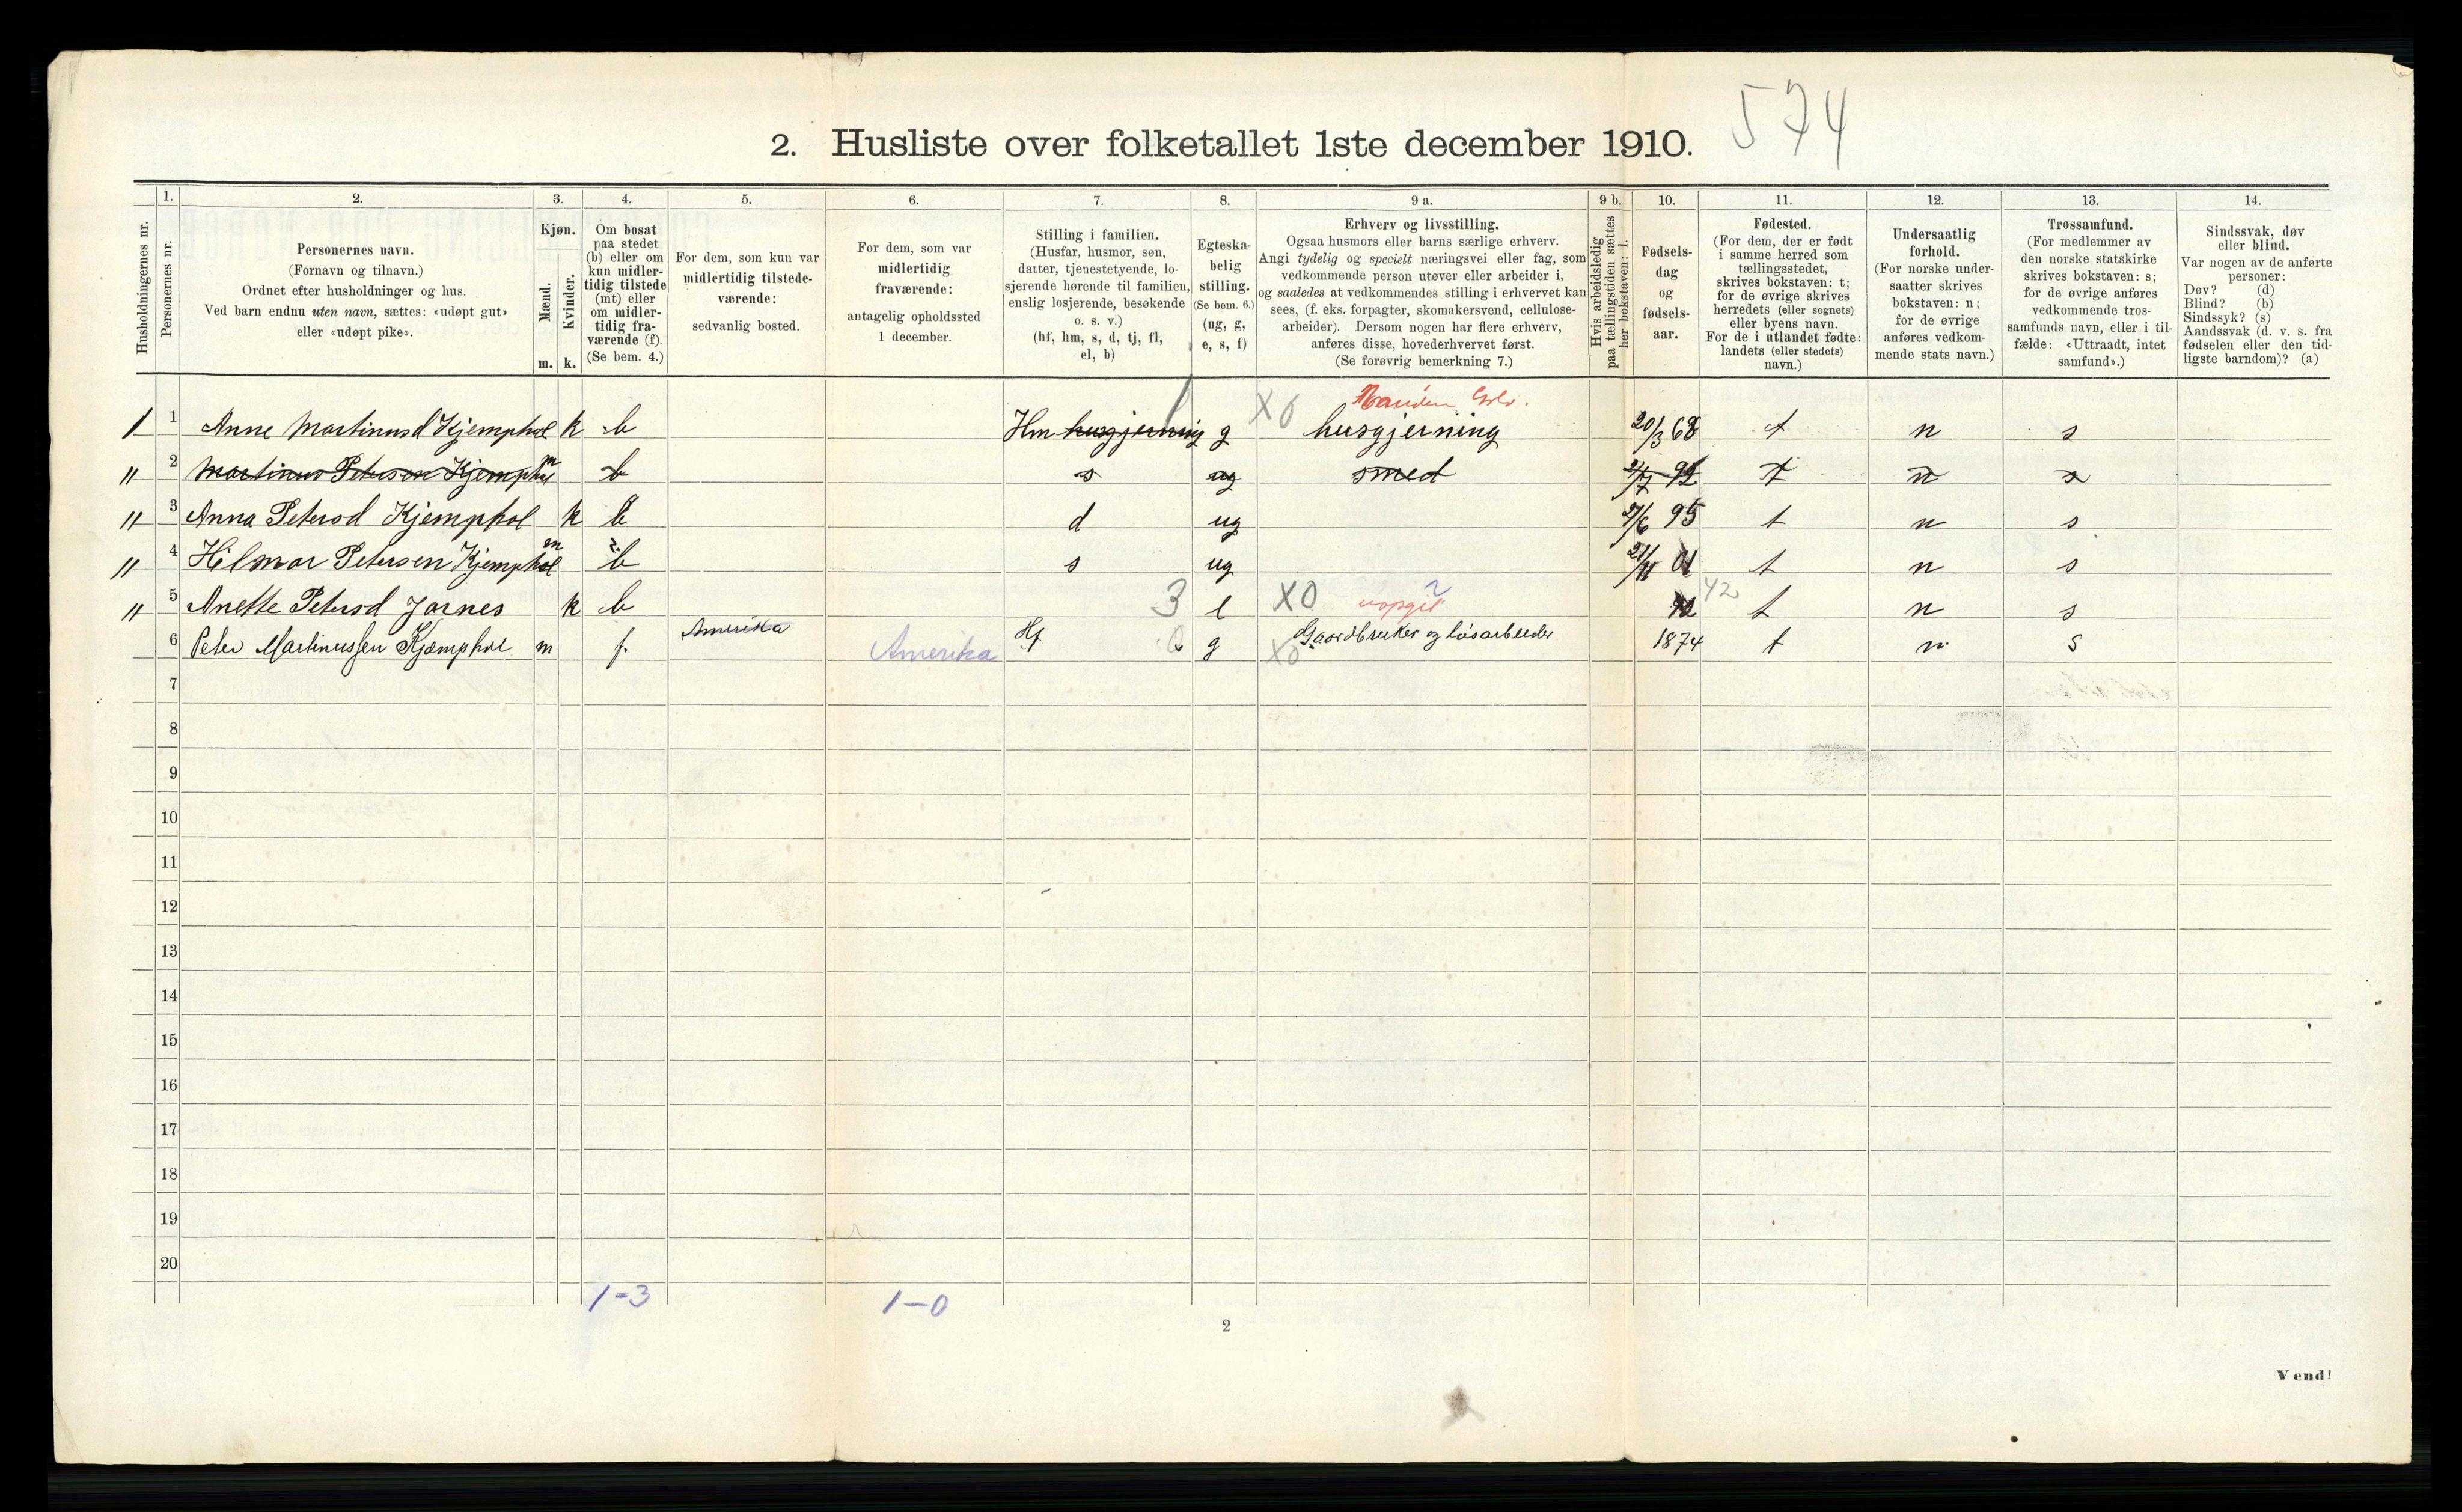 574
2. Husliste over folketallet 1ste december 1910.
Husholdningernes nr.
1.
Personernes nr.
2.
Personernes navn.
(Fornavn og tilnavn.)
Ordnet efter husholdninger og hus.
Ved barn endnu uten navn, sættes: «udøpt gut»
eller «udøpt pike».
3.
Kjøn.
Mænd.
Kvinder.
m. k.
4.
Om bosat
paa stedet
(b) eller om
kun midler-
tidig tilstede
(mt) eller
om midler-
tidig fra-
værende (f).
(Se bem. 4.)
5.
For dem, som kun var
midlertidig tilstede-
værende:
sedvanlig bosted.
6.
For dem, som var
midlertidig
fraværende:
antagelig opholdssted
1 december.
7.
Stilling i familien.
(Husfar, husmor, søn,
datter, tjenestetyende, lo-
sjerende hørende til familien,
enslig losjerende, besøkende
o. s. v.)
(hf, hm, s, d, tj, fl,
el, b)
8.
Egteska-
belig
stilling.
(Se bem. 6.)
(ug, g,
e, s, f)
9 a.
Erhverv og livsstilling.
Ogsaa husmors eller barns særlige erhverv.
Angi tydelig og specielt næringsvei eller fag, som
vedkommende person utøver eller arbeider i,
og saaledes at vedkommendes stilling i erhvervet kan
sees, (f. eks. forpagter, skomakersvend, cellulose-
arbeider). Dersom nogen har flere erhverv,
anføres disse, hovederhvervet først.
(Se forøvrig bemerkning 7.)
9 b.
Hvis arbeidsledig
paa tællingstiden sættes
her bokstaven: l.
10.
Fødsels-
dag
og
fødsels-
aar.
11.
Fødested.
(For dem, der er født
i samme herred som
tællingsstedet,
skrives bokstaven: t;
for de øvrige skrives
herredets (eller sognets)
eller byens navn.
For de i utlandet fødte:
landets (eller stedets)
navn.)
12.
Undersaatlig
forhold.
(For norske under-
saatter skrives
bokstaven: n;
for de øvrige
anføres vedkom-
mende stats navn.)
13.
Trossamfund.
(For medlemmer av
den norske statskirke
skrives bokstaven: s;
for de øvrige anføres
vedkommende tros-
samfunds navn, eller i til-
fælde: «Uttraadt, intet
samfund».)
14.
Sindssvak, døv
eller blind.
Var nogen av de anførte
personer:
Døv? (d)
Blind? (b)
Sindssyk? (s)
Aandssvak (d. v. s. fra
fødselen eller den tid-
ligste barndom)? (a)
1 1 Anne Martinusd Kjemphol k b Hm husgjerning g X0 husgjerning 20/3 68 t n s
" 2 Martinus Petersen Kjemphol m b s ug smed 92 t n s
" 3 Anna Petersd Kjemphol k b d ug 27/6 95 t n s
" 4 Hilmar Petersen Kjemphol m b s ug 21/11 01 t n s
" 5 Anette Petersd Jarnes k b 3 e X0 uopgit 42 t n s
6 Peter Martinussen Kjæmphol m f Amerika Amerika Hf g X0 Gaardbruker og løsarbeider 1874 t n s
7
8
9
10
11
12
13
14
15
16
17
18
19
20
1-3 1-0
2
Vend!